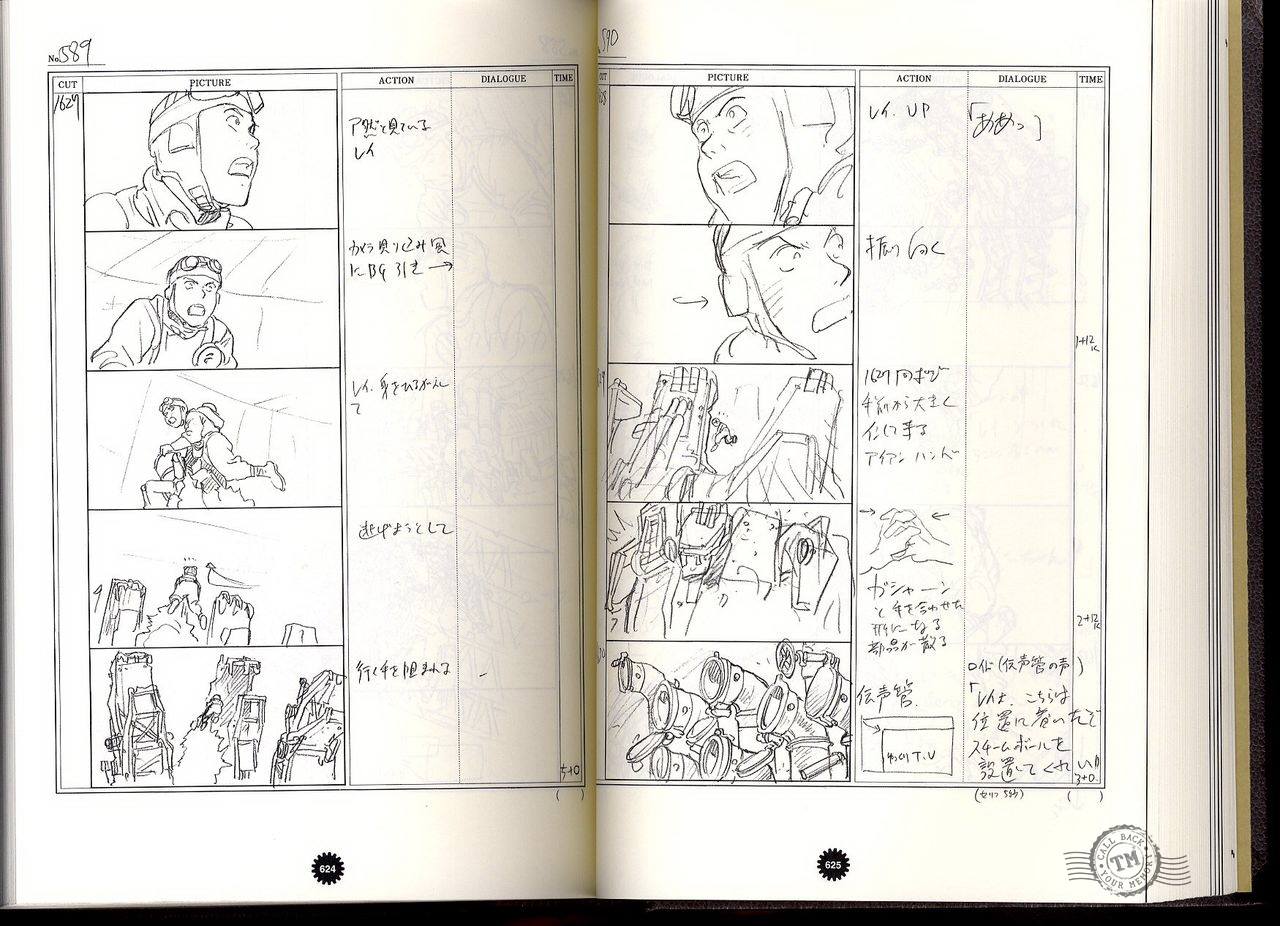 No. 589
CUT PICTURE ACTION DIALOGUE TIME
1627
ア然と見ている
レイ
カメラ見り込み風
にBG引き→
レイ、身をひるがえし
て
逃げようとして
行く手を阻まれる
5+0
( )
624
590
CUT PICTURE ACTION DIALOGUE TIME
レイ. UP
「ああっ」
振り向く
1+12
1627同ポジ
手前から大きく
インして来る
アイアンハンド
ガシャーン
と手を合わせた
形になる
部品が散る
2+12
伝声管.
T.U
ロイド(伝声管の声)
「レイよ、こちらは
位置に着いたぞ
スチームボールを
設置してくれい」
3+0
( )
625
CALL BACK
TM
YOUR MEMORY